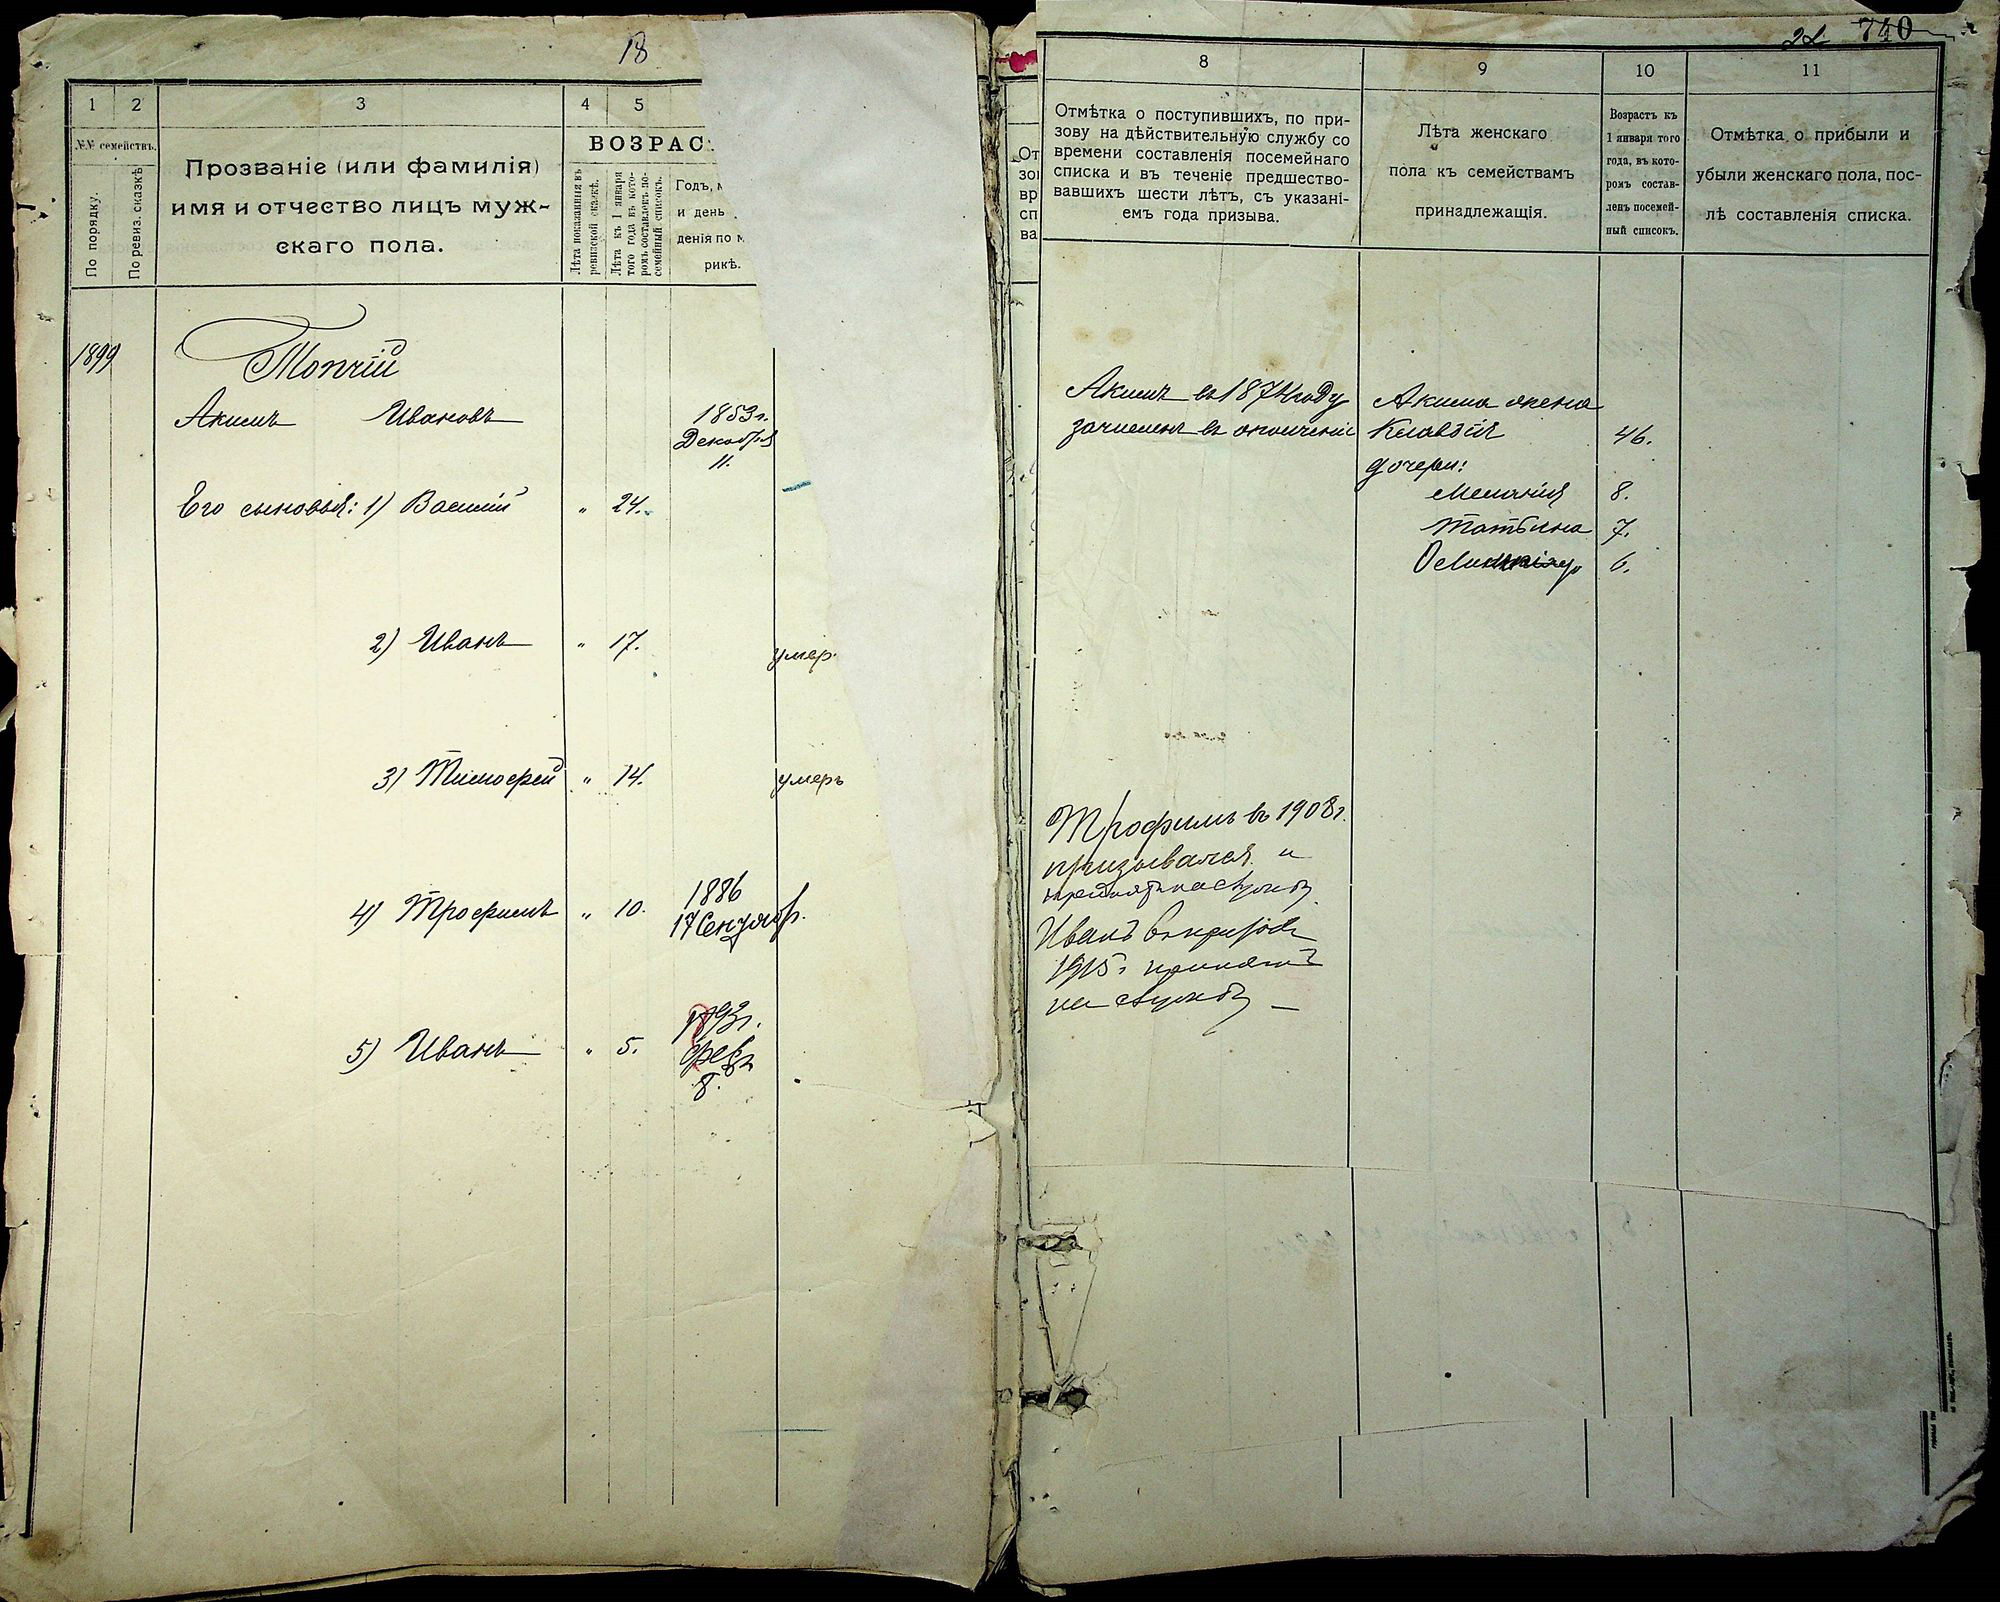 18
1
2
3
4
5
№№ семействъ.
По порядку.
По ревиз. сказкѣ
Прозваніе (или фамилія)
имя и отчество лицъ муж-
скаго пола.
ВОЗРАС
Лѣта показанныя въ
ревизской сказкѣ.
Лѣта къ 1 января
того года въ кото-
ромъ составленъ по-
семейный списокъ.
Годъ, м
и день
денія по м
рикѣ.
1899
Топчій
Акимъ Ивановъ
1853 г.
Декабря
11.
Его сыновья: 1) Василій „ 24.
2) Иванъ „ 17.
умер.
3) Тимофей „ 14.
умеръ
4) Трофимъ „ 10.
1886
17 Сентябр.
5) Иванъ „ 5.
1893 г.
фев
8.
От
зо
вр
сп
ва
22 740
8
9
10
11
Отмѣтка о поступившихъ, по при-
зову на дѣйствительную службу со
времени составленія посемейнаго
списка и въ теченіе предшество-
вавшихъ шести лѣтъ, съ указані-
емъ года призыва.
Лѣта женскаго
пола къ семействамъ
принадлежащія.
Возрастъ къ
1 января того
года, въ кото-
ромъ состав-
ленъ посемей-
ный списокъ.
Отмѣтка о прибыли и
убыли женскаго пола, пос-
лѣ составленія списка.
Акимъ въ 1874 году
зачисленъ въ ополченіе
Акима жена
Клавдія 46.
дочери:
Меланія 8.
Татьяна 7.
6.
Трофимъ въ 1908 г.
призывался и
принятъ на службу.
Иванъ въ призовъ
1915 г. принятъ
на службу —